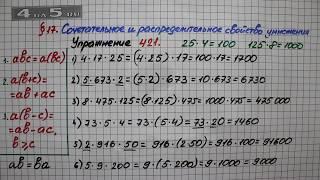 4 на 5.ru
§ 17. Сочетательное и распределительное свойство умножения
Упражнение 421. 25·4=100 125·8=1000
1. abc = a(bc)
2. a(b+c)=
=ab+ac
3. a(b-c)=
=ab-ac,
b≥c
ab=ba
1) 4·17·25=(4·25)·17=100·17=1700
2) 5·673·2=(5·2)·673=10·673=6730
3) 8·475·125=(8·125)·475=1000·475=475000
4) 73·5·4=73·(5·4)=73·20=1460
5) 2·916·50=916·(2·50)=916·100=91600
6) 5·9·200=9·(5·200)=9·1000=9000